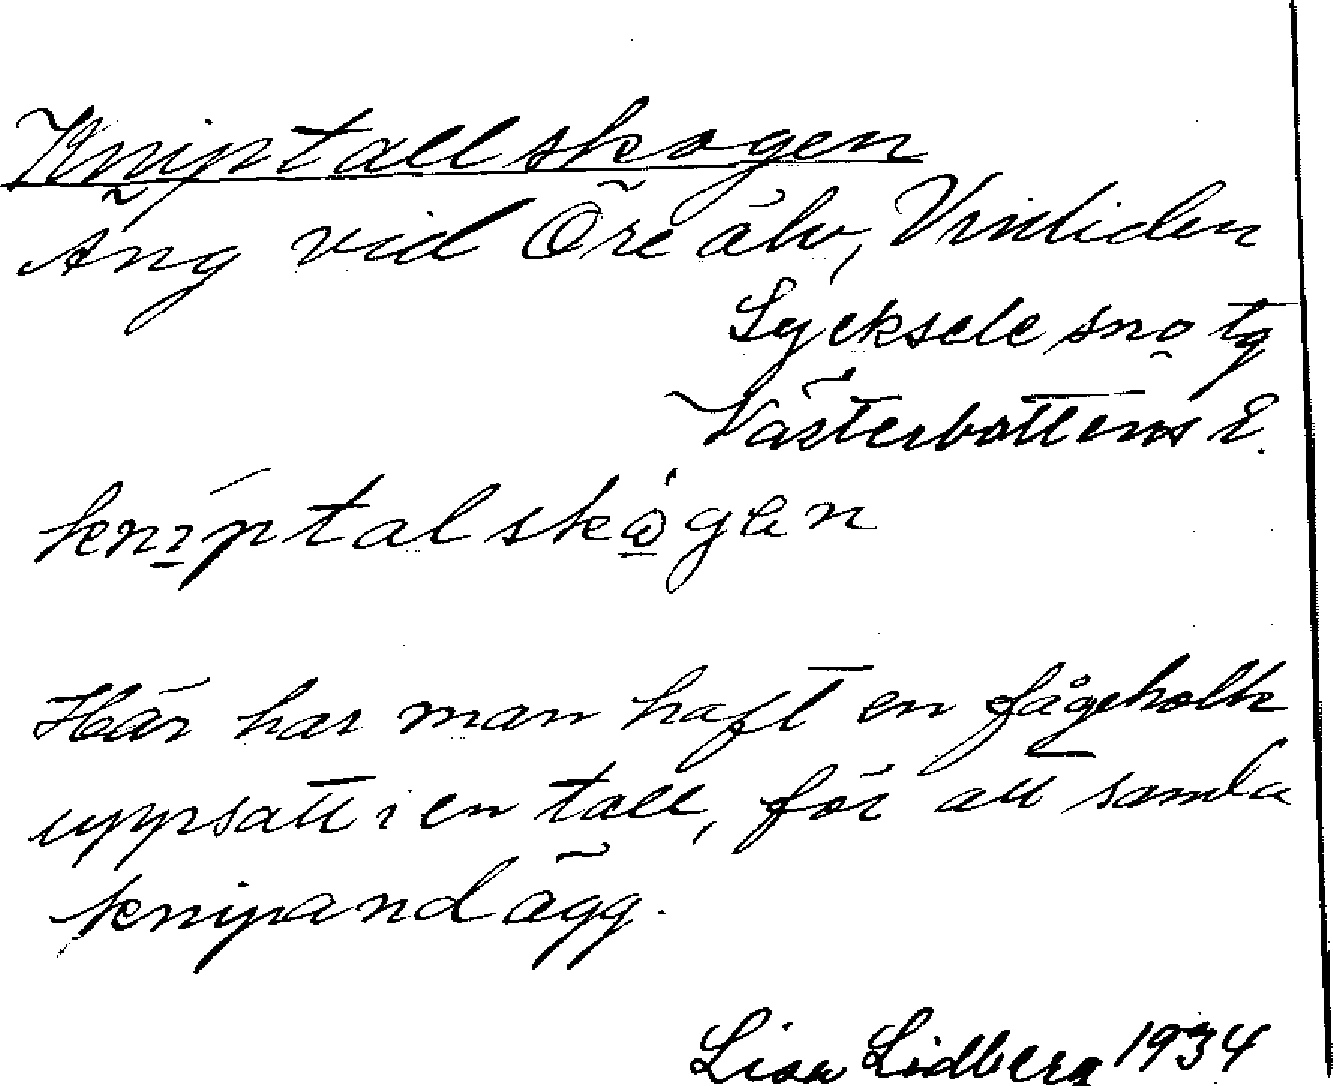 Kniptallskogen
Äng vid Öre älv, Vinliden
Lycksele sn o tg
Västerbottens l.
knìptalskò̱gen
Här har man haft en fågelholk
uppsatt i en tall, för att samla
knipandägg.
Lisa Lidberg 1934